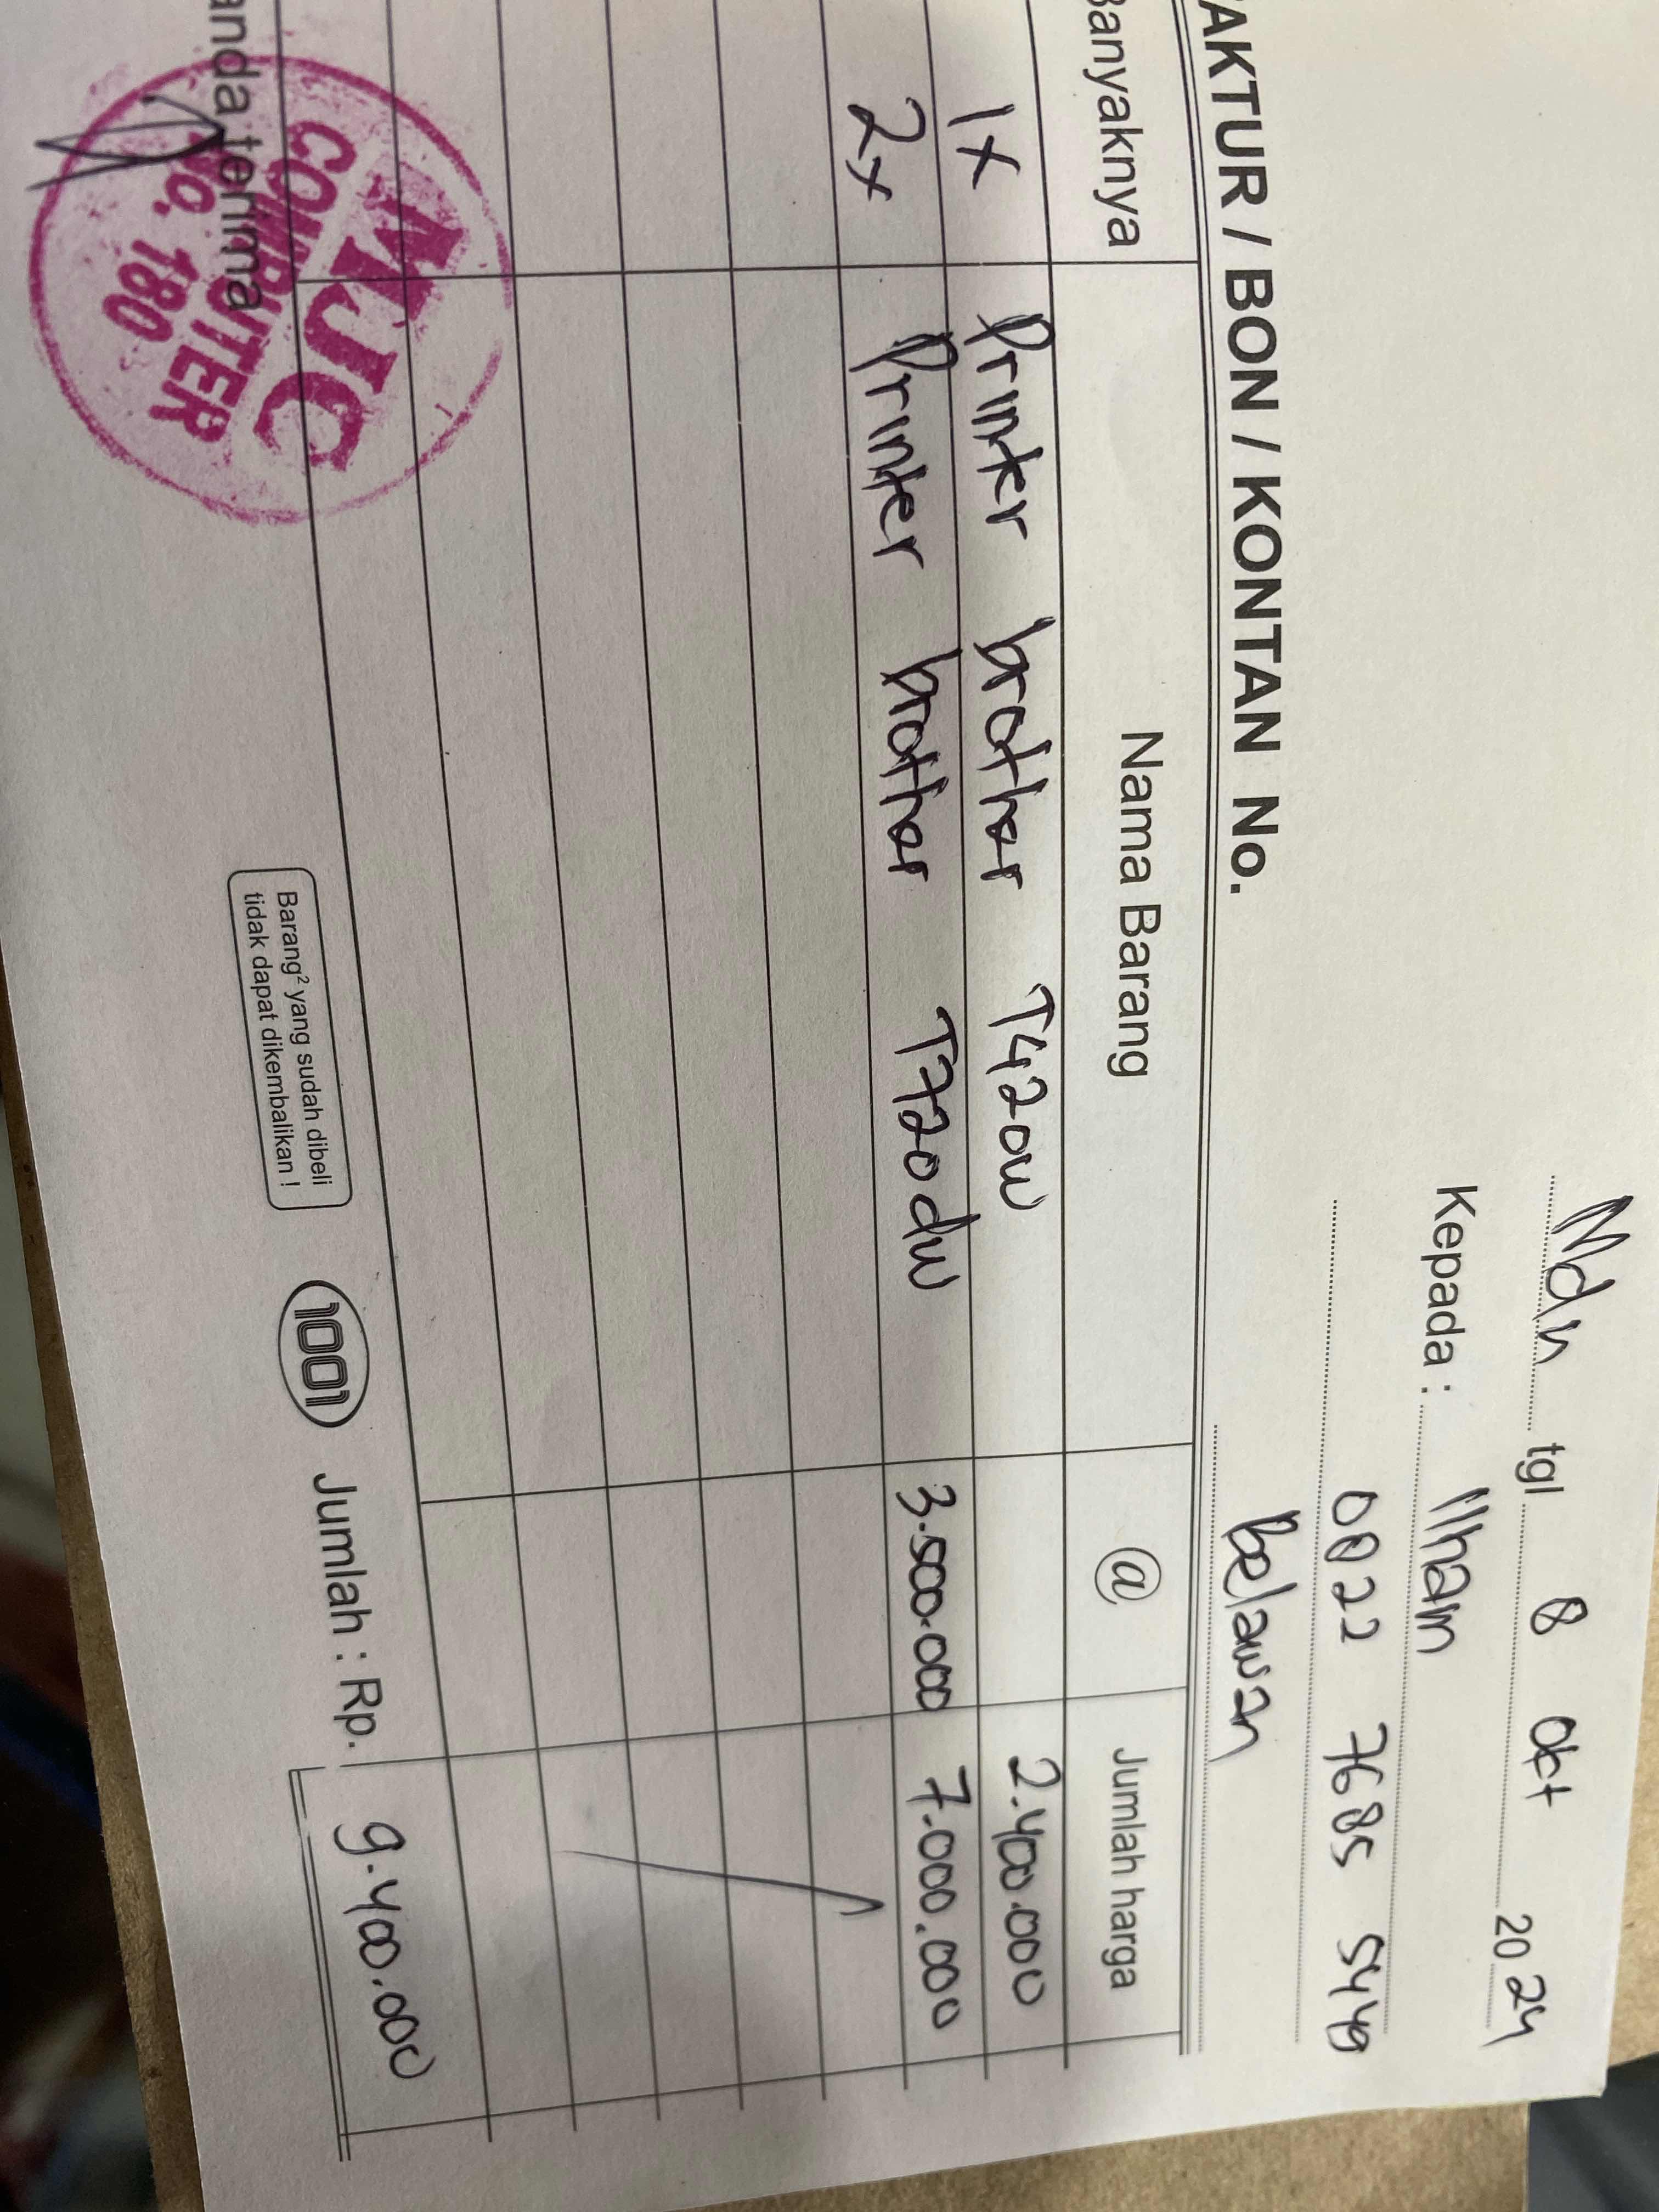 Mdn tgl 8 Okt 2024
Kepada : Ilham
0822 7685 5449
Belawan
FAKTUR / BON / KONTAN No.
Banyaknya Nama Barang @ Jumlah harga
1x Printer brother T420W 2.400.000
2x Printer brother T720dw 3.500.000 7.000.000
Jumlah : Rp. 9.400.000
Tanda terima
Barang² yang sudah dibeli
tidak dapat dikembalikan !
1001
MJC
COMPUTER
NO. 180